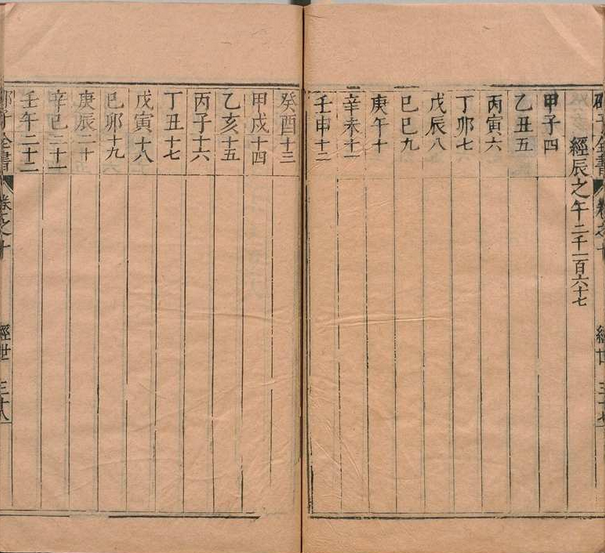 邵子全書 卷之十 經世 三十七
經辰之午二千一百六十七
甲子四
乙丑五
丙寅六
丁卯七
戊辰八
巳巳九
庚午十
辛未十一
壬申十二
癸酉十三
甲戌十四
乙亥十五
丙子十六
丁丑十七
戊寅十八
巳卯十九
庚辰二十
辛巳二十一
壬午二十二
邵子全書 卷之十 經世 三十八